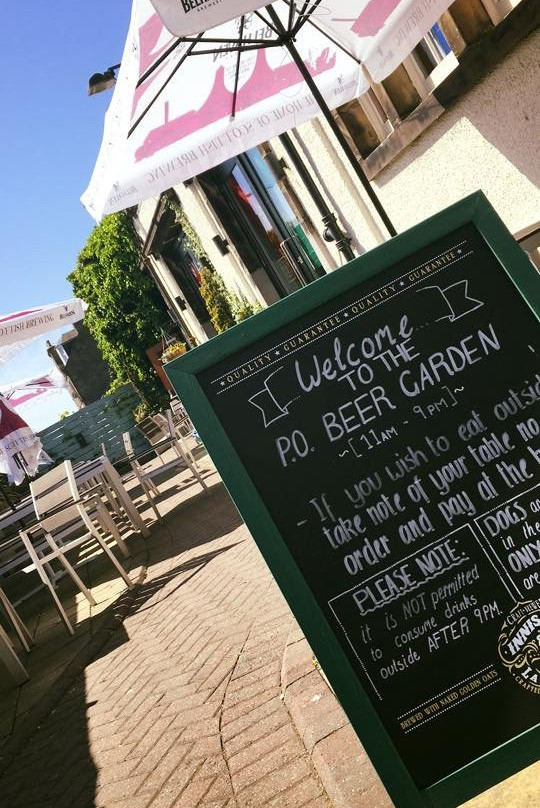 THE HOME OF SCOTTISH BREWING
SCOTTISH BREWING
★ QUALITY ★ GUARANTEE ★ QUALITY ★ GUARANTEE ★
Welcome
TO THE
P.O. BEER GARDEN
~[11AM - 9PM]~
- If you wish to eat outsid
take note of your table no
order and pay at the b
PLEASE NOTE:
it is NOT permitted
to consume drinks
outside AFTER 9PM.
DOGS a
in the
ONLY
are
INNIS
BREWED WITH NAKED GOLDEN OATS